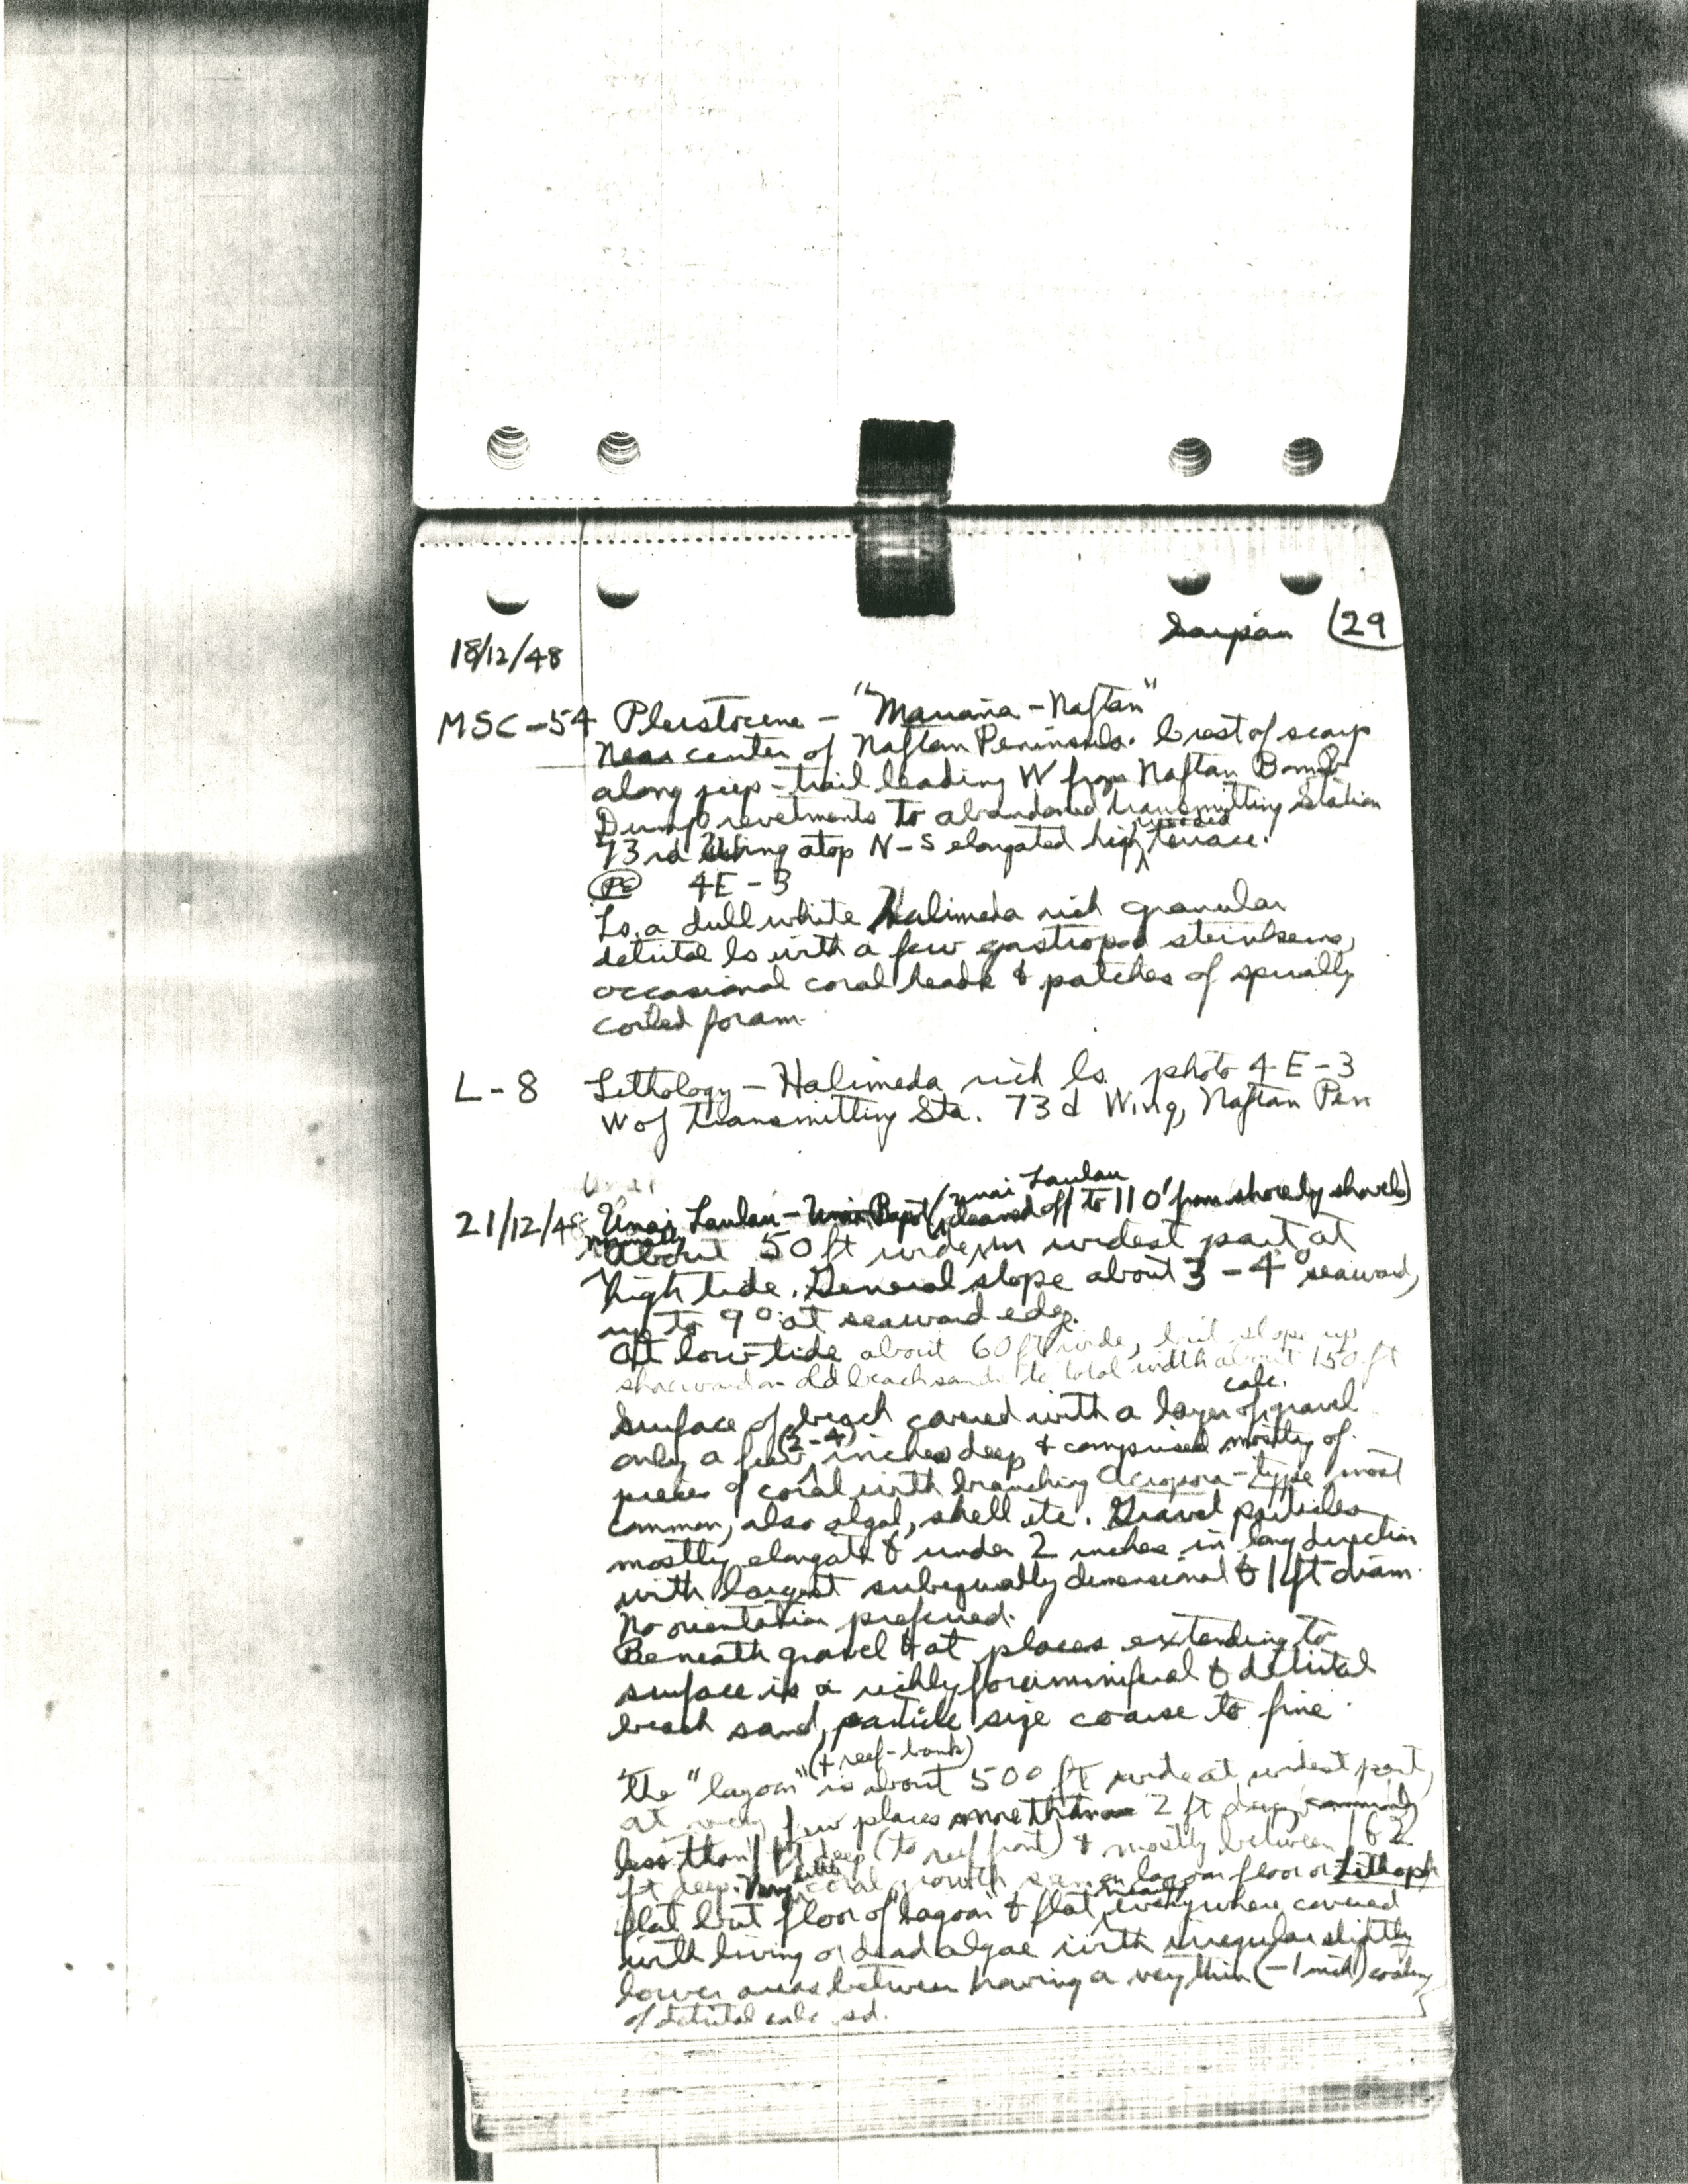 Saipan (29
18/12/48
MSC-54 Pleistocene - "Mariana-Naftan"
Near center of Naftan Peninsula. Crest of scarp
along jeep-trail leading W from Naftan Bomb
Dump revetments to abandoned transmitting Station
73rd Wing atop N-S elongated high wooded terrace.
(PE) 4E-3
Ls. a dull white Halimeda rich granular
detrital ls with a few gastropod steinkerns,
occasional coral heads & patches of spirally
coiled foram.
L-8 Lithology - Halimeda rich ls. photo 4-E-3
W of transmitting Sta. 73d Wing, Naftan Pen
21/12/48 Unai Laulau - (Unai Laulau cleaned off to 110' from shore by shovels)
normally About 50 ft wide in widest part at
high tide. General slope about 3-4° seaward,
up to 9° at seaward edge.
At low tide about 60 ft wide, but slope up
shoreward on old beach sands to total width about 150 ft
Surface of beach covered with a layer of calc. gravel
only a few (2-4) inches deep & comprised mostly of
pieces of coral with branching Acropora-type most
common, also algal, shell etc. Gravel particles
mostly elongate & under 2 inches in long direction
with largest subequally dimensional & 1 ft diam.
No orientation preferred.
Beneath gravel & at places extending to
surface is a richly foraminiferal & detrital
beach sand, particle size coarse to fine.
The "lagoon" (+ reef-bank) is about 500 ft wide at widest part,
at very few places more than 2 ft deep, commonly
less than 1 ft deep (to reef front) & mostly between 1 & 2
ft deep. Very little coral growth seen on lagoon floor or Lithoph
flat but floor of "lagoon" & flat nearly everywhere covered
with living or dead algae with irregular slightly
lower areas between having a very thin (-1 inch) coating
of detrital calc. sd.